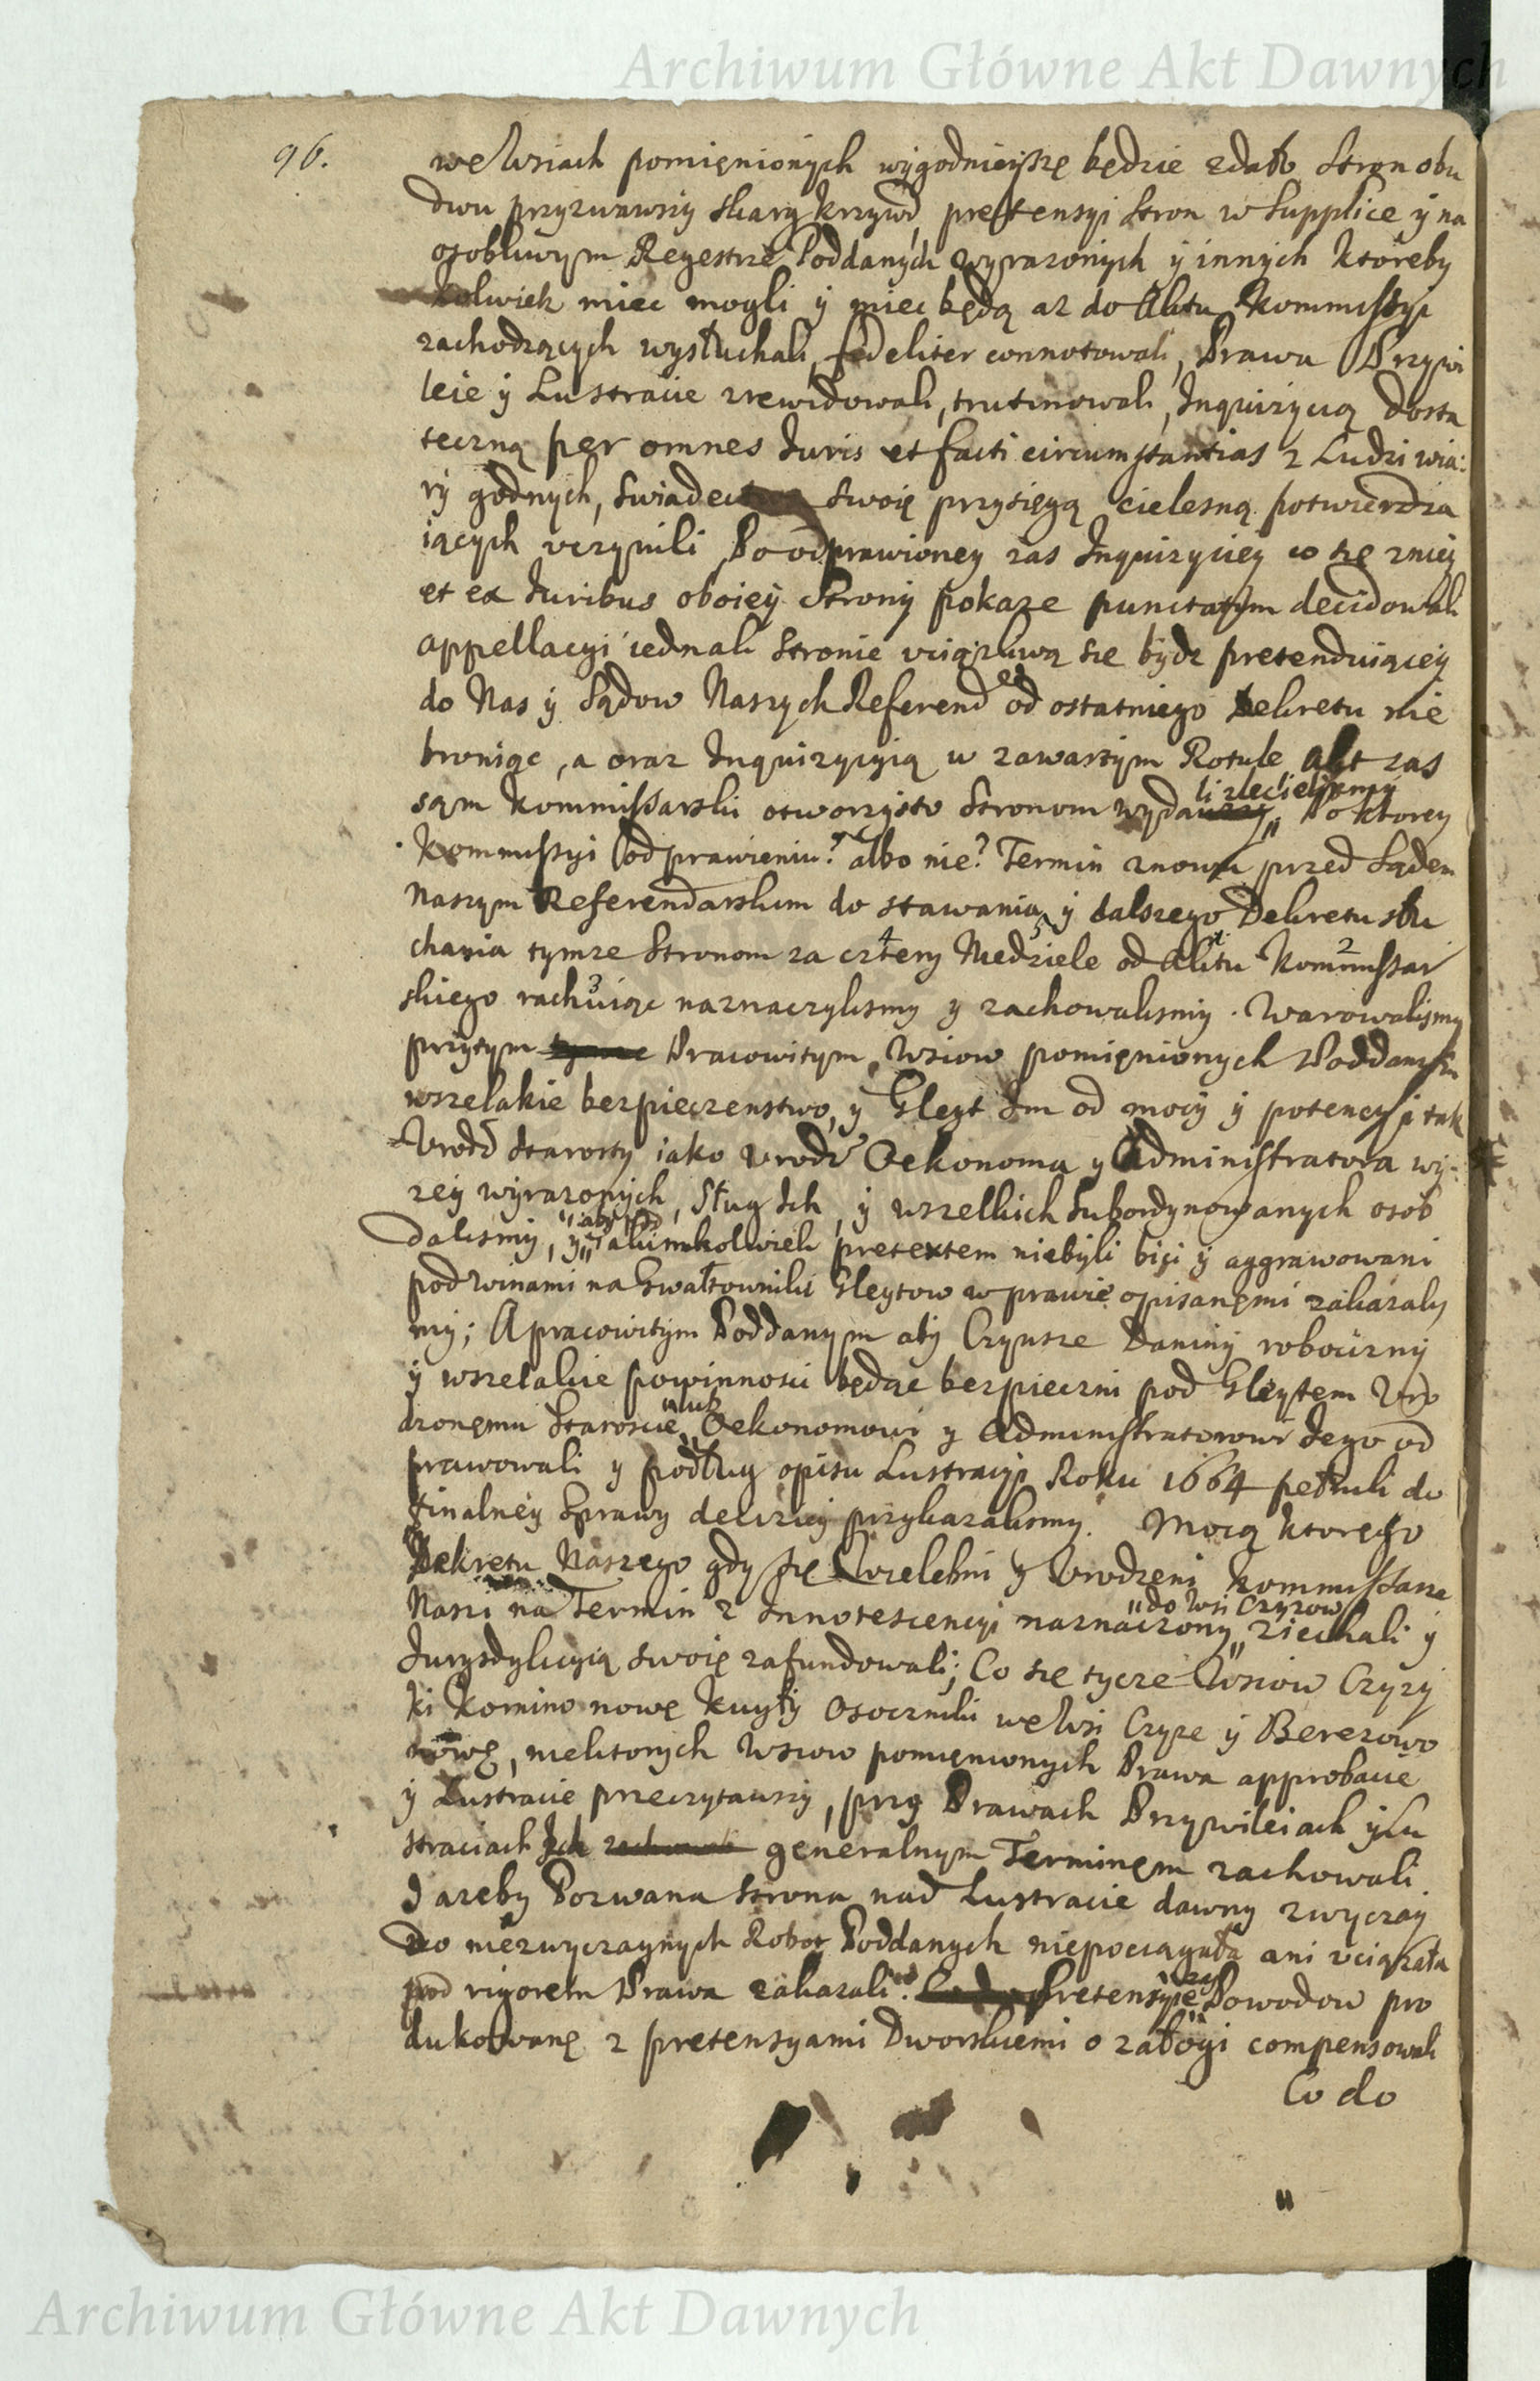 Archiwum Główne Akt Dawnych
96.
we Wsiach pomięnionych wygodnieyszę będzie zdało Stron obu
dwu przyzwawszy skarg krzywd, pretensyi Stron w Supplice y na
osobliwym Regestrze Poddanych wyrazonych y innych ktoreby
kolwiek miec mogli y miec będą az do Aktu Kommissyi
zachodzących wysłuchali, fideliter connotowali, Prawa Przywi
leie y Lustracie zrewidowali, trutinowali, Inquizycią dosta
teczną per omnes Iuris et facti circumstantias z Ludzi wia:
ry godnych, swiadectwa swoię przysięgą cielesną potwierdza
iących vczynili, Po odprawioney zas Inquizyciey co się zniey
et ex Iuribus oboiey Strony pokaze punctatym decidowali
appellacyi iednak Stronie vciązliwą się bydz pretenduiącey
do Nas y Sądow Naszych Referend od ostatniego Dekretu nie
broniąc, a oraz Inquizycyią w zawartym Rotule Akt zas
sąm Kommissarski otworzysto Stronom wydali zlecielismy Po ktorey
Kommissyi odprawieniu? albo nie? Termin znowu przed Sądem
Naszym Referendarskim do stawania y dalszego Dekretu słu
chania tymze Stronom za cztery Niedziele od Aktu Kommissar
skiego rachuiąc naznaczylismy y zachowalismy. Warowalismy
przytym Pracowitym Wsiow pomięnionych Poddanym
wszelakie bezpieczenstwo, y Gleyt Im od mocy y potencyi tak
Vrodz Starosty iako Vrodz Oekonoma y Administratora wy:
zey wyrazonych, Sług Ich, y wszelkich Subordynowanych osob
dalismy, y aby pod iakimkolwiek pretextem niebyli bici y aggrawowani
pod winami na Gwałtowniki Gleytow w prawie opisanęmi zakazalis
my; A pracowitym Poddanym aby Czynsze Daniny roboczny
y wszelakie powinnosci będąc bezpieczni pod Gleytem Vro
dzonęmu Staroscie lub Oekonomowi y Administratorowi Jego od
prawowali y podług opisu Lustracyi Roku 1664 pełnili do
finalney Sprawy decizyi przykazalismy. Mocą ktoręgo
Dekretu Naszego gdy się Wielebni y Vrodzeni Kommissarze
Nasi na Termin z Innotescencyi naznaczony do Wsi Czyzow ziechali y
Iurysdykcyią swoię zafundowali; Co się tycze Wsiow Czyzy
ki Komino nowę Kuyły Osoczniki we Wsi Czyze y Berezowo
nowę, niektorych Wsiow pomięnionych Prawa approbacie
y Lustracie przeczytawszy, przy Prawach Przywileiach y Lu
straciach Ich generalnym Terminęm zachowali
I azeby Pozwana Strona nad Lustracie dawny zwyczay
do niezwyczaynych Robot Poddanych niepociągała ani vciązała
pod rigorem Prawa zakazali. Pretensyie zas Powodow pro
dukowanę z pretensyami Dworskiemi o załogi compensowali
Co do
Archiwum Główne Akt Dawnych